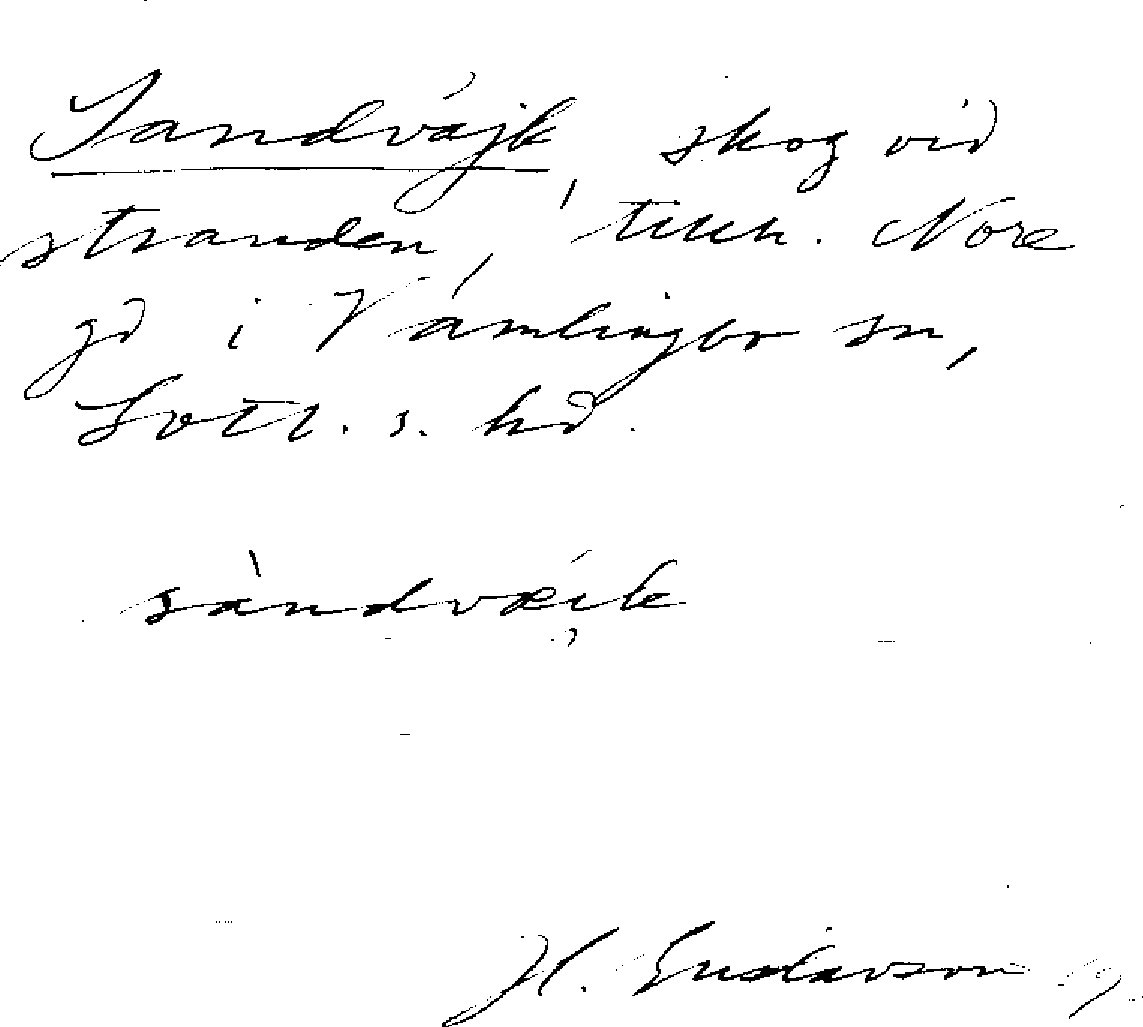 Sandväjk, skog vid
stranden, tillh. Nore
gd i Vämlingbo sn,
Gotl. s. hd.
sàndvæik
H. Gustavson